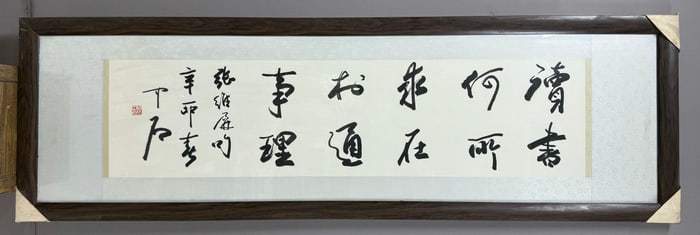 讀書
何所
求在
於通
事理
張維屏句
辛卯春